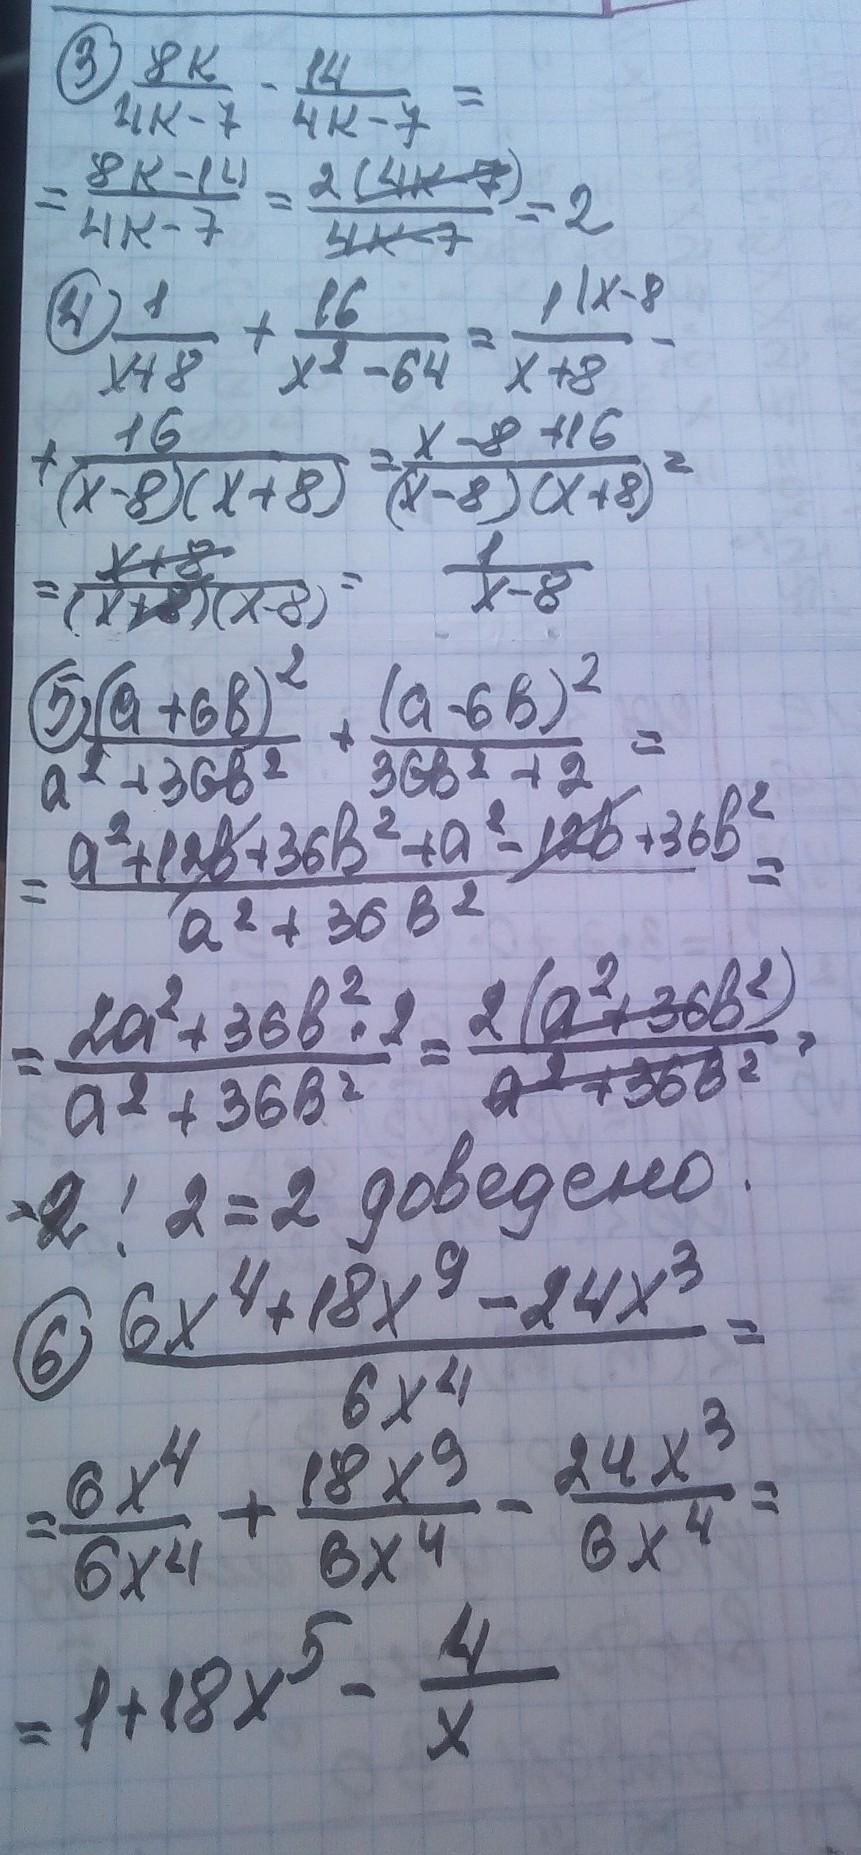 ③ 8к/4к-7 - 14/4к-7 =
= 8к-14/4к-7 = 2(4к-7)/4к-7 = 2
④ 1/x+8 + 16/x²-64 = 1(x-8/x+8 -
+ 16/(x-8)(x+8) = x-8+16/(x-8)(x+8) =
= x+8/(x+8)(x-8) = 1/x-8
⑤ (a+6b)²/a²+36b² + (a-6b)²/36b²+2 =
= a²+12b+36b²+a²-12b+36b²/a²+36b² =
= 2a²+36b²·2/a²+36b² = 2(a²+36b²)/a²+36b² =
=2! 2=2 доведено.
⑥ 6x⁴+18x⁹-24x³/6x⁴ =
= 6x⁴/6x⁴ + 18x⁹/6x⁴ - 24x³/6x⁴ =
= 1+18x⁵ - 4/x